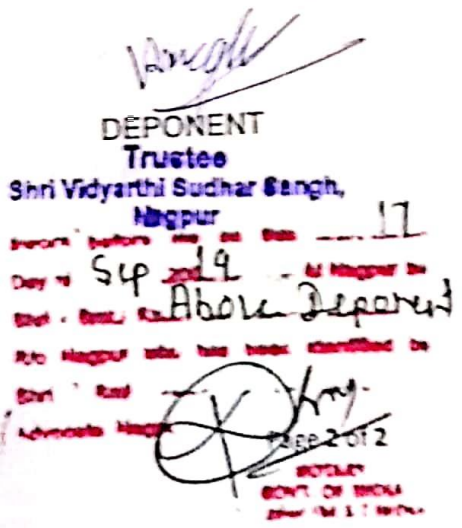 DEPONENT
Trustee
Shri Vidyarthi Sudhar Sangh,
Nagpur
before me on this 17
Day of Sep 2019 At Nagpur by
Shri Above Deponent
R/o Nagpur who has been identified by
Shri
Advocate Nagpur
Page 2 of 2
NOTARY
GOVT. OF INDIA